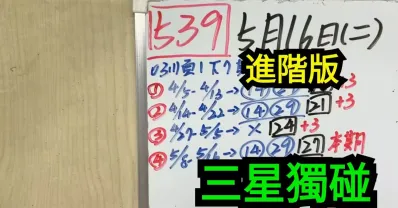 539 5月16日(二)
進階版
① 4/5-4/13→(14)(29)
② 4/14-4/22→(14)(29) 21 +3
③ 4/27-5/5→ × 24 +3
④ 5/8-5/16→(14)(29) 27 本期
三星獨碰